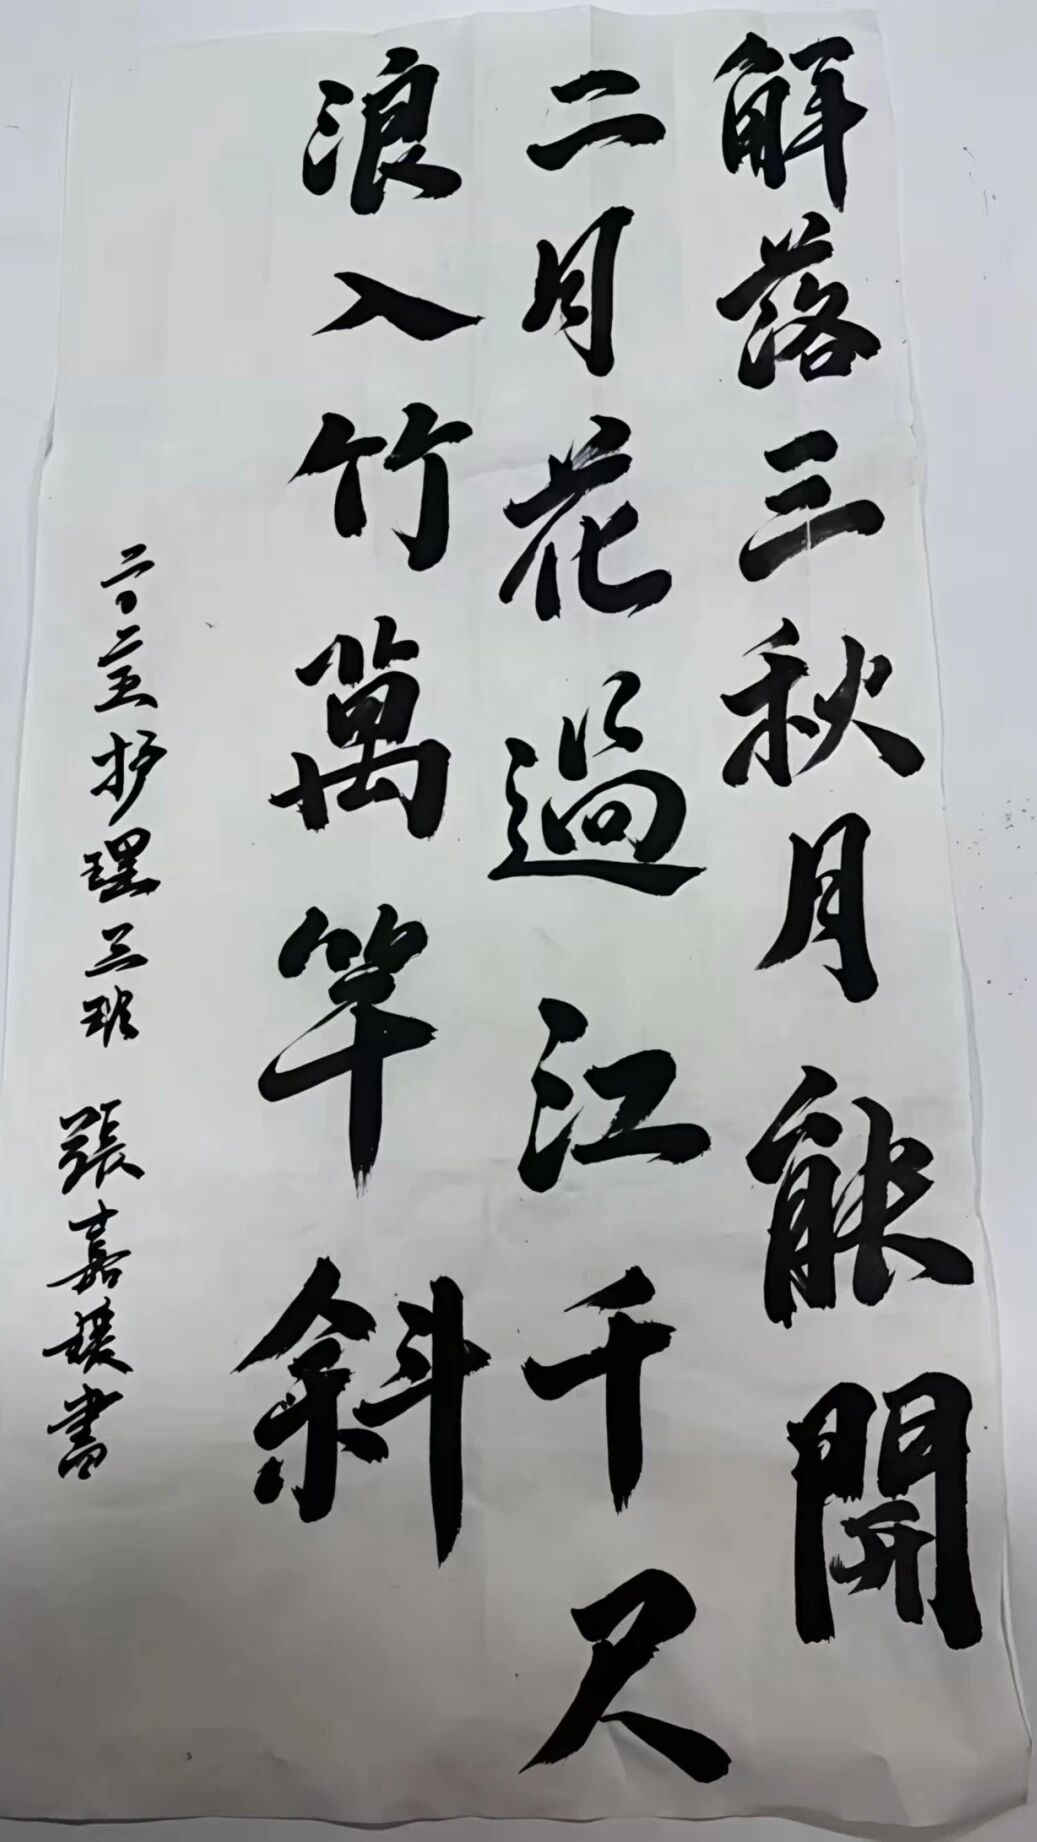 解落三秋月能開
二月花過江千尺
浪入竹萬竿斜
二〇二五护理三班 張嘉媛書